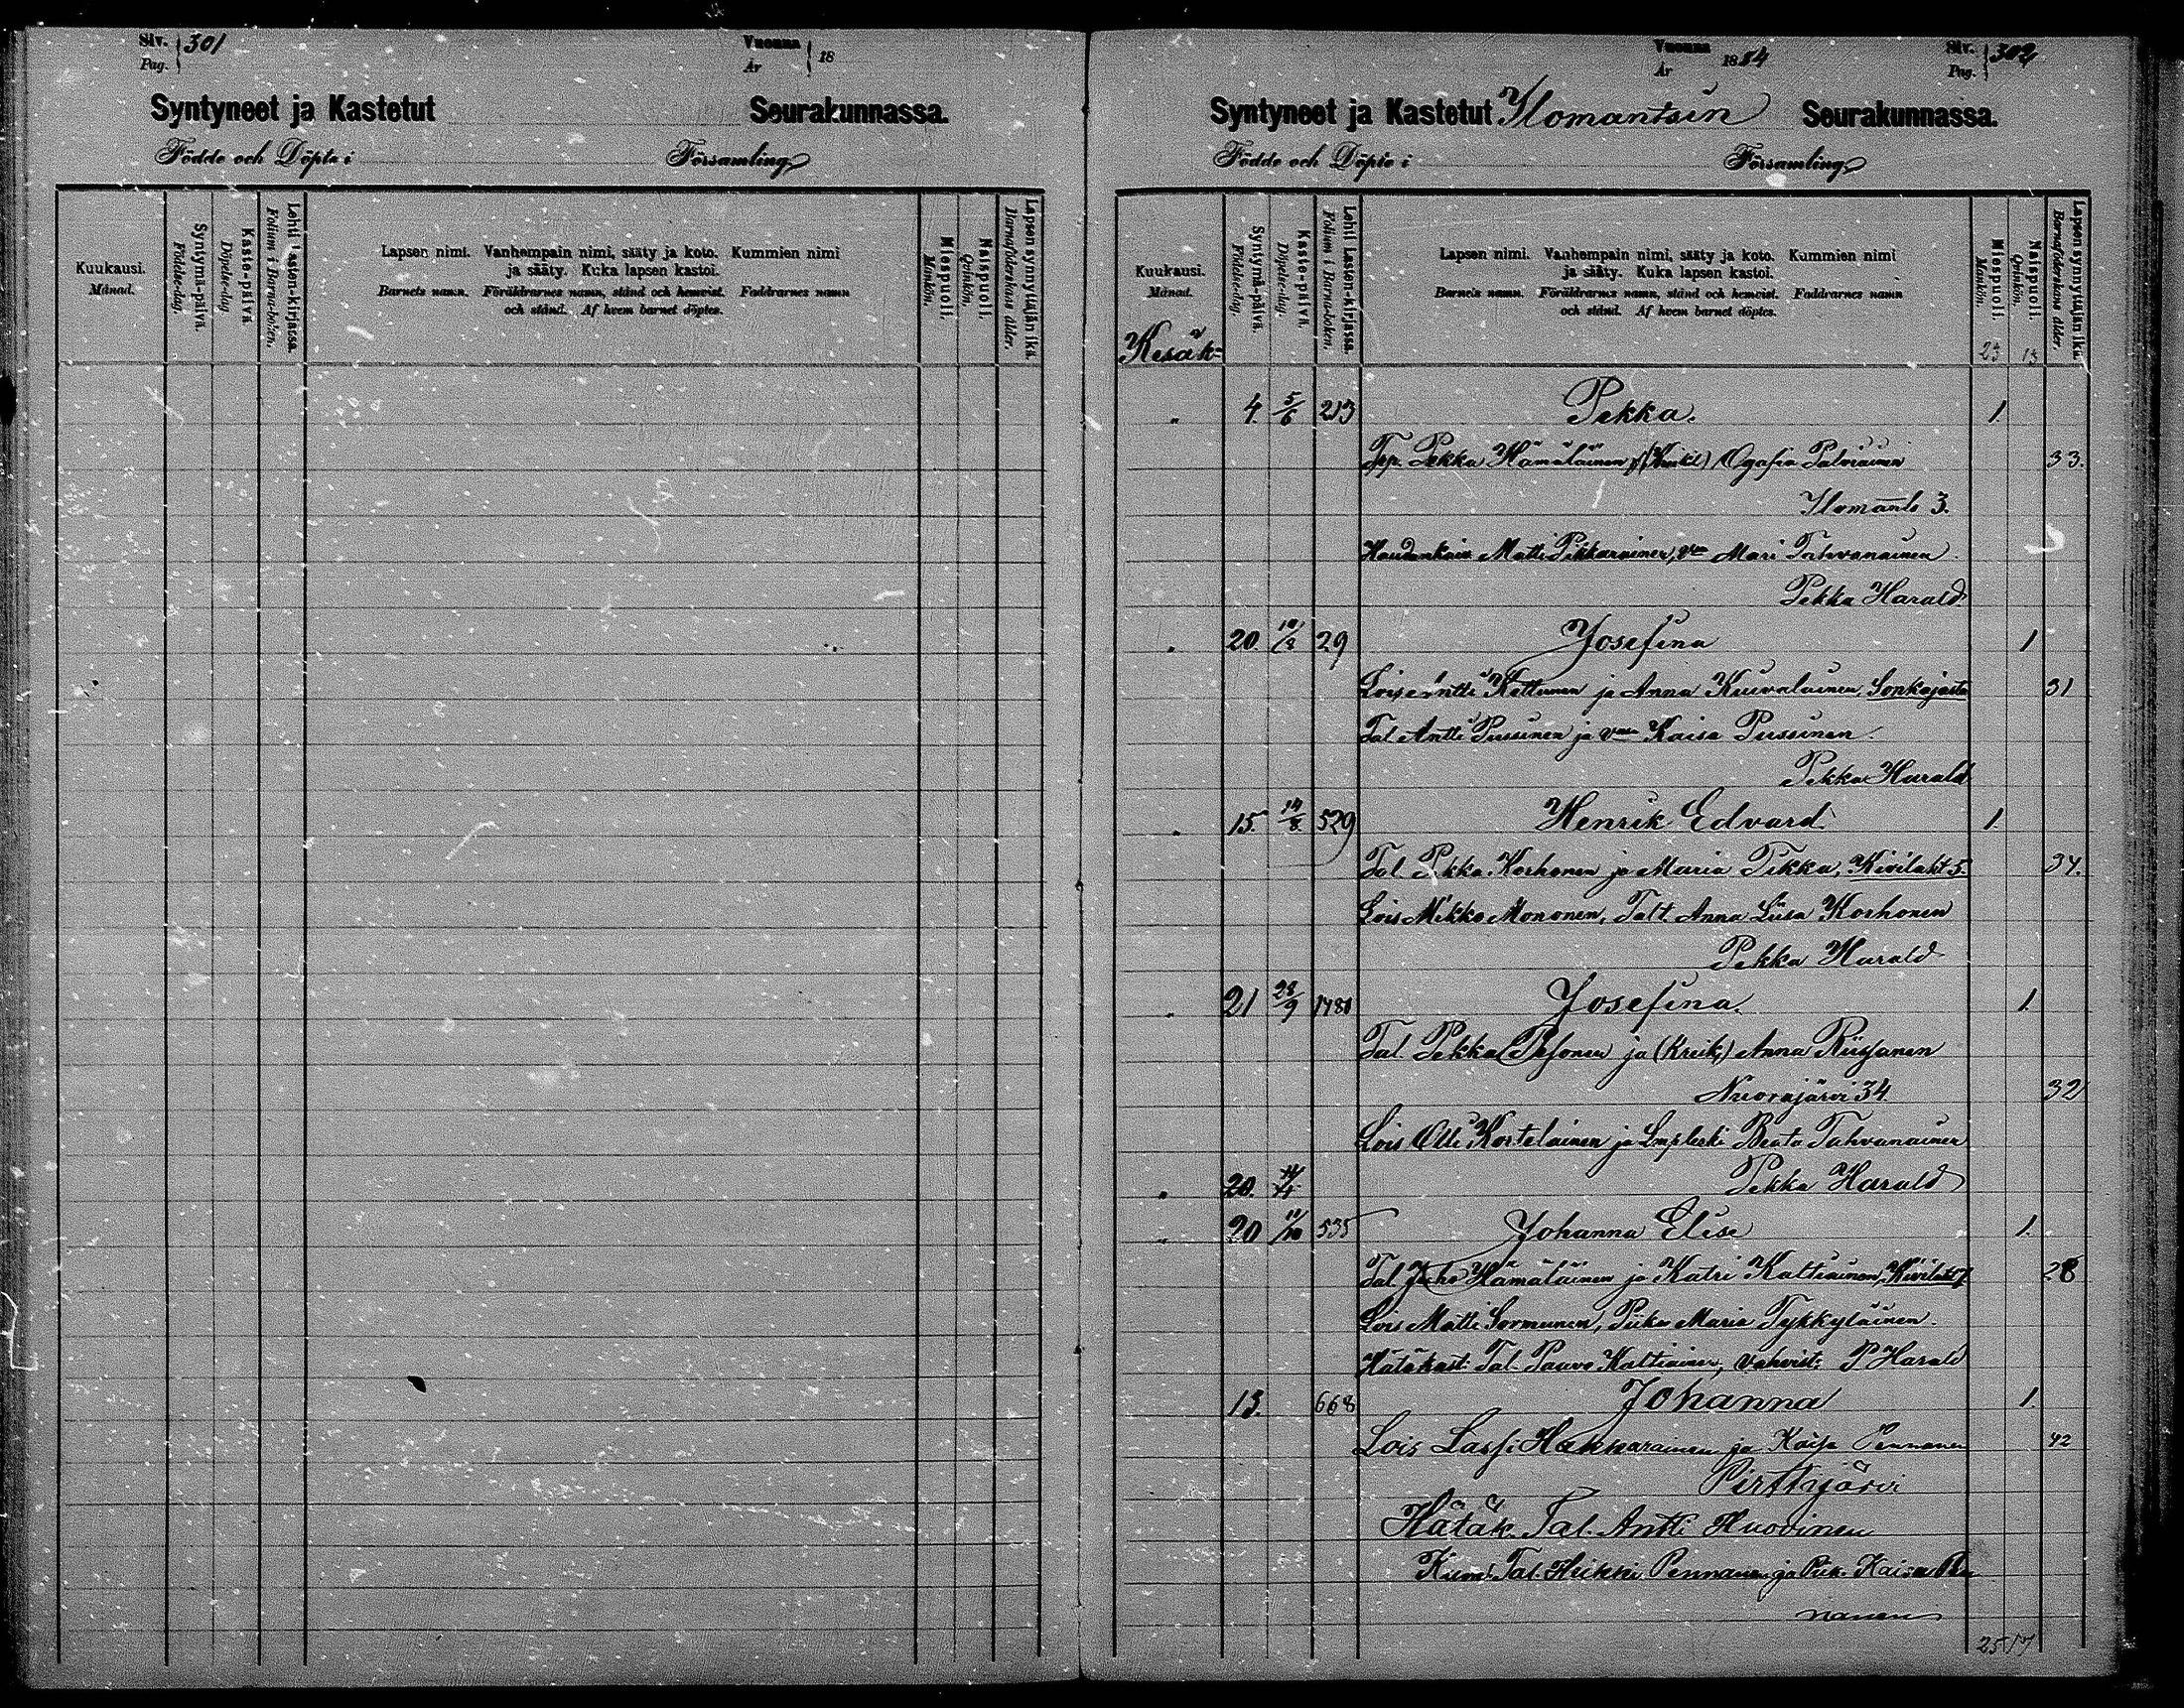 Siv. Pag. 301
Vuonna År 18
Syntyneet ja Kastetut Seurakunnassa.
Födde och Döpte i Församling
Kuukausi. Månad.
Syntymä-päivä. Födelse-dag.
Kaste-päivä Döpelse-dag
Lehti Lasten-kirjassa. Folium i Barna-boken.
Lapsen nimi. Vanhempain nimi, sääty ja koto. Kummien nimi
ja sääty. Kuka lapsen kastoi.
Barnets namn. Föräldrarnes namn, stånd och hemvist. Faddrarnes namn
och stånd. Af hvem barnet döptes.
Miespuoli. Mankön.
Naispuoli. Qvinkön.
Lapsen synnyttäjän ikä. Barnaföderskans ålder.
Vuonna År 1884
Siv. Pag. 302
Syntyneet ja Kastetut Ilomantsin Seurakunnassa.
Födde och Döpte i Församling
Kuukausi. Månad.
Syntymä-päivä. Födelse-dag.
Kaste-päivä. Döpelse-dag.
Lehti Lasten-kirjassa. Folium i Barna-boken.
Lapsen nimi. Vanhempain nimi, sääty ja koto. Kummien nimi
ja sääty. Kuka lapsen kastoi.
Barnets namn. Föräldrarnes namn, stånd och hemvist. Faddrarnes namn
och stånd. Af hvem barnet döptes.
Miespuoli. Mankön.
Naispuoli. Qvinkön.
Lapsen synnyttäjän ikä. Barnaföderskans ålder.
Kesäk= 23 13
" 4. 5/6 213 Pekka. 1
Pekka Hämäläinen Ogafia Palviainen 33.
Ilomants 3.
Matti Pikkarainen, vmo Mari Tahvanainen
Pekka Harald
" 20. 29 Josefina 1
Lois Antti Kettunen ja Anna Kuivalainen, Sonkajasta 31
Tal Antti Pussinen ja vmo Kaisa Pussinen.
Pekka Harald
" 15. 14/8 529 Henrik Edvard. 1.
Tal. Pekka Korhonen ja Maria Tikka, Kivilaht 5. 34.
Lois Mikko Mononen, Talt. Anna Liisa Korhonen
Pekka Harald
" 21 28/9 1480 Josefina. 1.
Tal. Pekka Pesonen ja (Kreik.) Anna Riissanen
Nuorajärvi 34. 32
Lois Olli Kortelainen ja Lmpleski Beata Tahvanainen
" 20. Pekka Harald
" 20 11/10 535 Johanna Elise 1.
Tal. Juho Hämäläinen ja Katri Kattiainen, Kivilaht 7 28
Lois Matti Sormunen, Piika Maria Tykkyläinen.
Hätäkast: Tal. Paavo Kattiainen, vahvist: P Harald
13. 668 Johanna 1.
Lois Lassi Hakkarainen ja Kaisa Pennanen 42
Pirttijärvi
Hätäk. Tal. Antti Huovinen
Kum: Tal. Heikki Pennanen ja Piik. Kaisa Pen
nanen
25 17